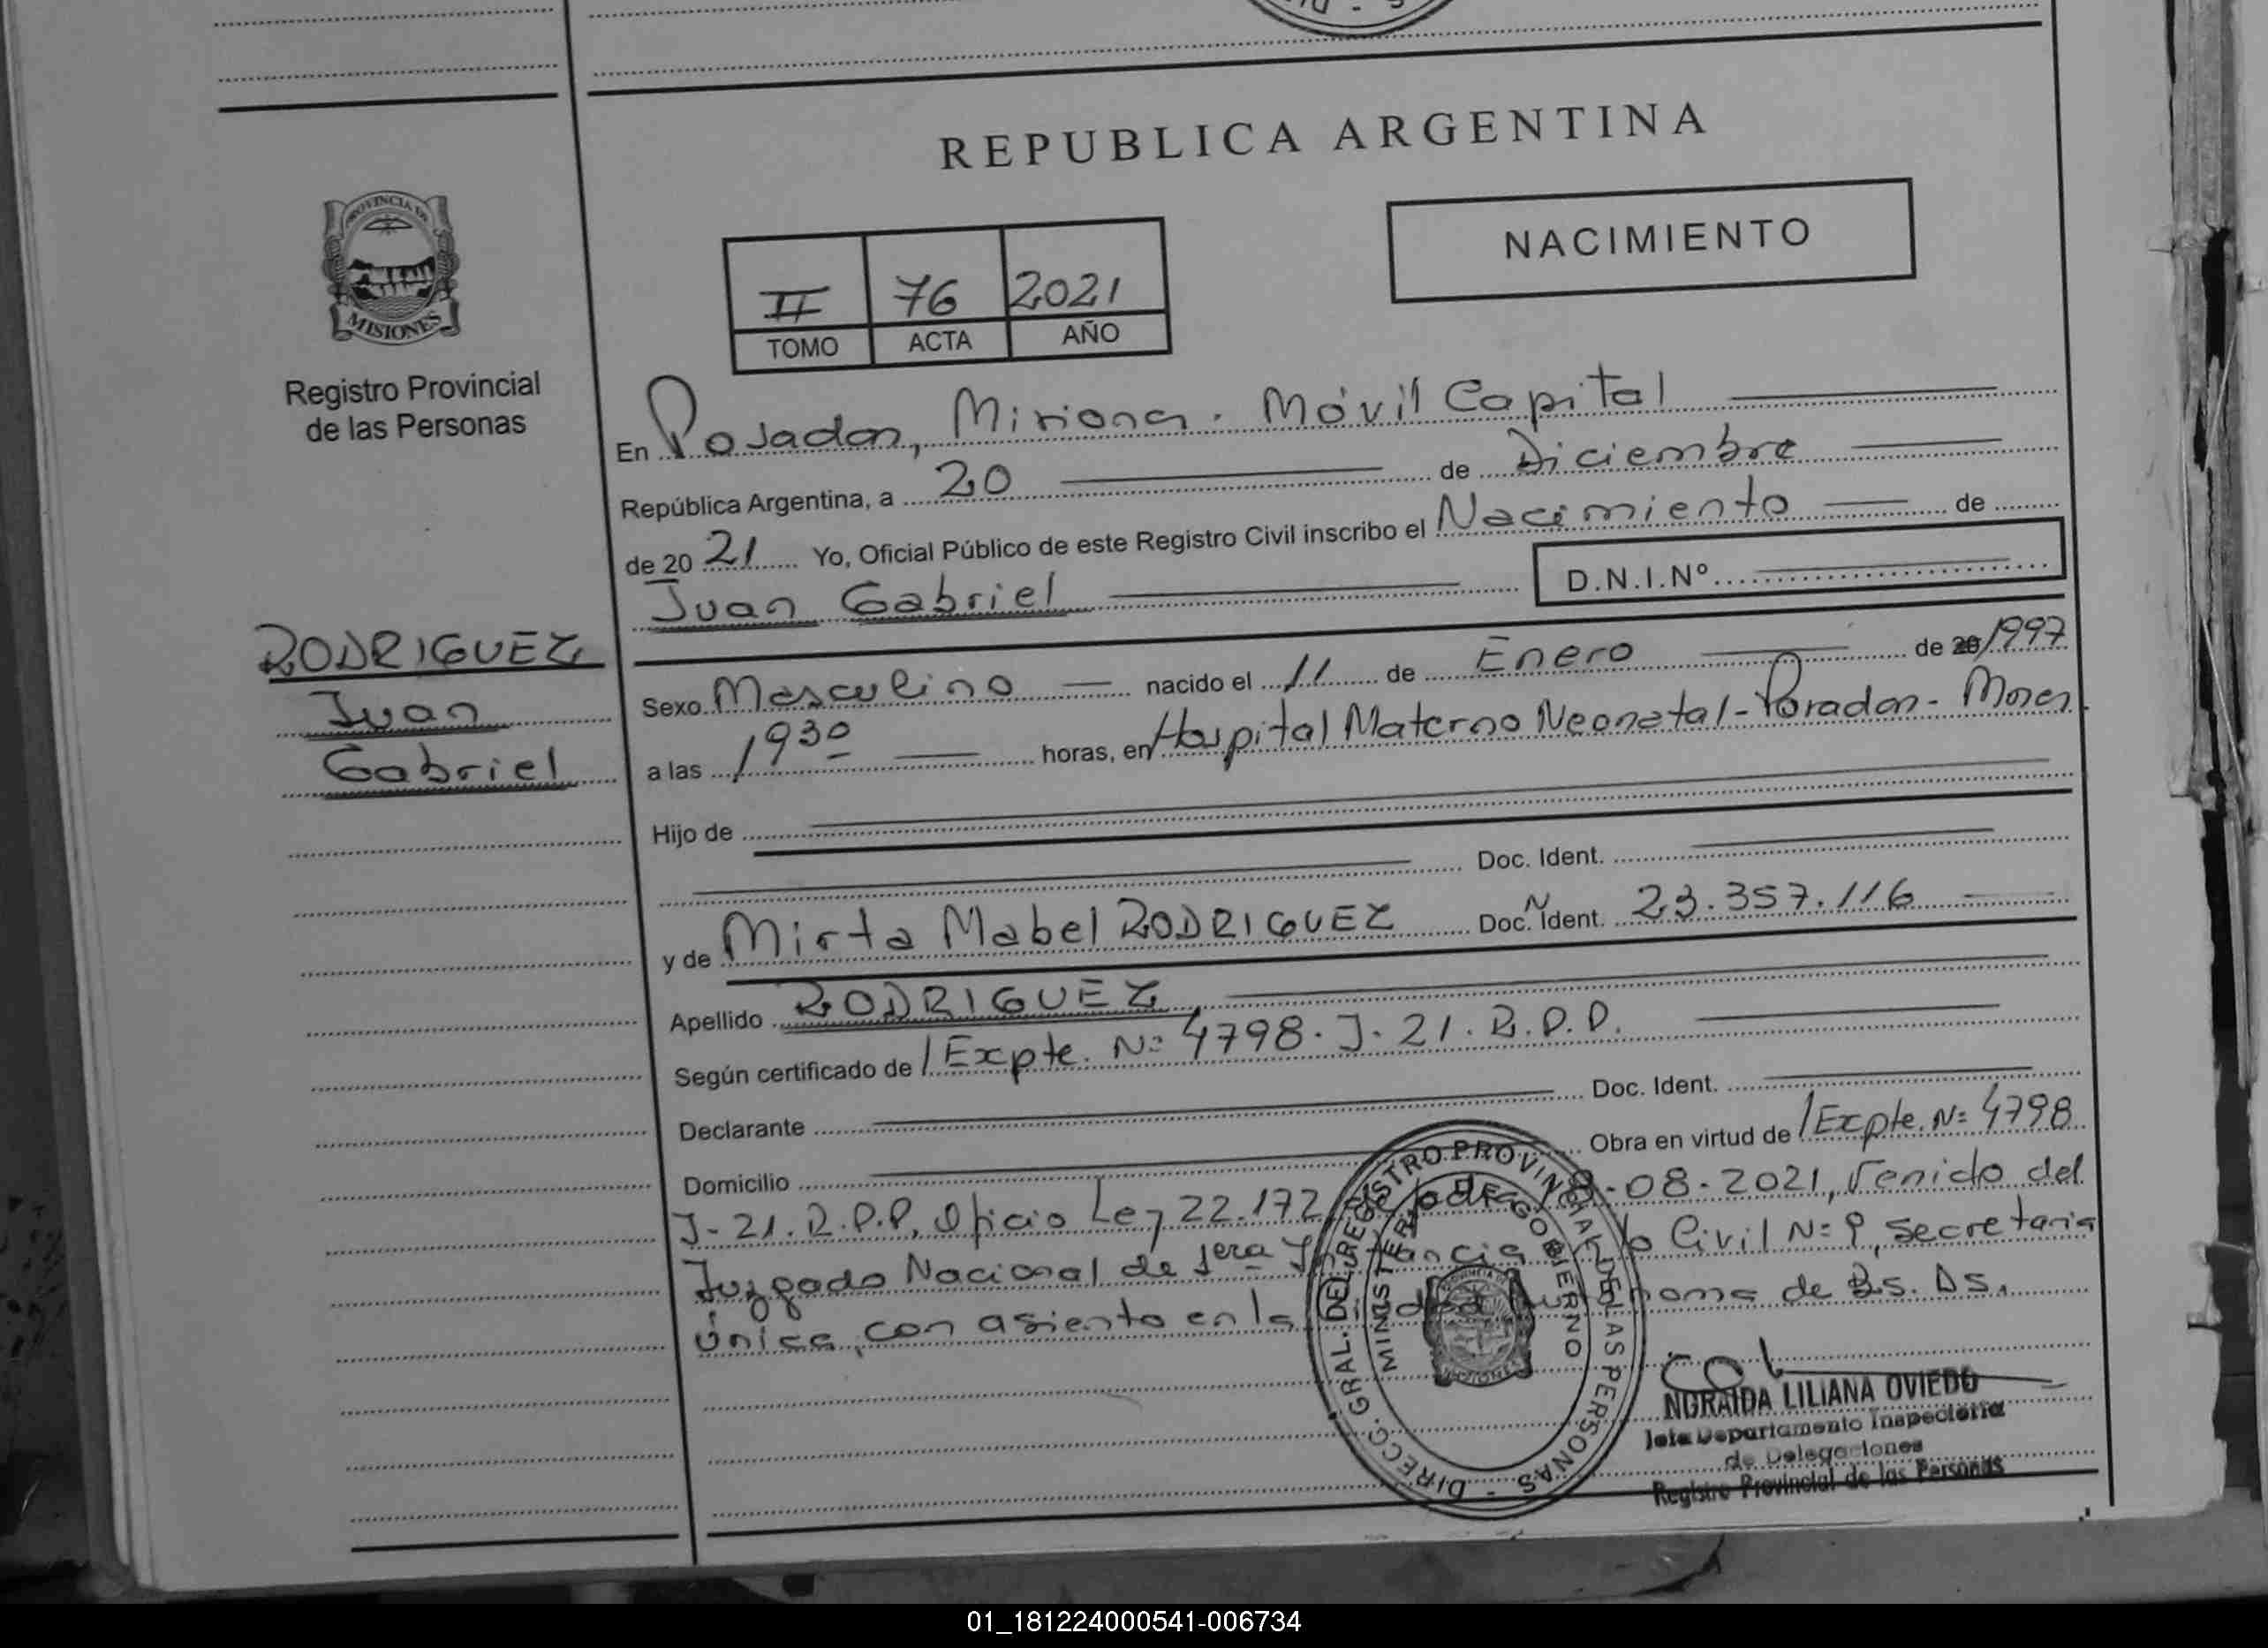 REPUBLICA ARGENTINA
PROVINCIA DE
MISIONES
Registro Provincial
de las Personas
NACIMIENTO
II 76 2021
TOMO ACTA AÑO
En Posadas, Misiones. Móvil Capital
República Argentina, a 20 de Diciembre
de 20 21 Yo, Oficial Público de este Registro Civil inscribo el Nacimiento de
Juan Gabriel D.N.I.Nº
RODRIGUEZ
Juan
Gabriel
Sexo Masculino nacido el 11 de Enero de 20/1997
a las 19 30 horas, en Hospital Materno Neonatal - Posadas - Mnes.
Hijo de
Doc. Ident.
y de Mirta Mabel RODRIGUEZ Doc. N Ident. 23.357.116
Apellido RODRIGUEZ
Según certificado de /Expte. Nº 4798. J. 21. R.P.P.
Declarante Doc. Ident.
Domicilio Obra en virtud de /Expte. Nº 4798
J-21. R.P.P, Oficio Ley 22.172, -08-2021, venido del
Juzgado Nacional de 1era Instancia Civil Nº 9, secretaria
única, con asiento en la Ciudad Autónoma de Bs. As.
DIRECC. GRAL. DEL REGISTRO PROVINCIAL DE LAS PERSONAS -
MINISTERIO DE GOBIERNO
NGRAIDA LILIANA OVIEDO
Jefa Departamento Inspectoria
de Delegaciones
Registro Provincial de las Personas
01_181224000541-006734